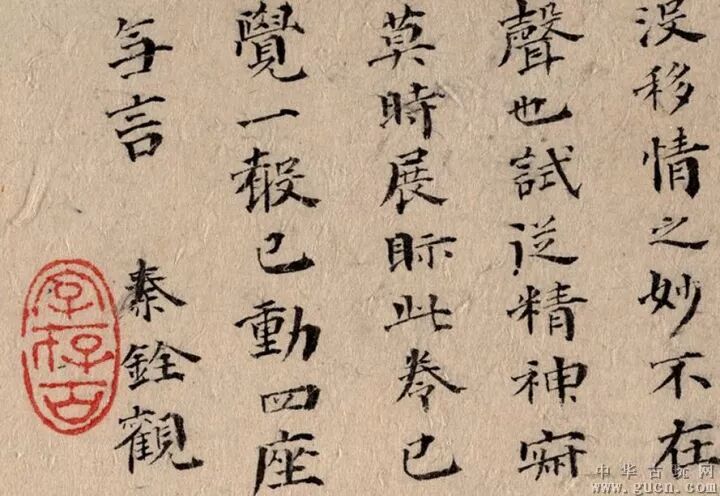 没移情之妙不在
聲也試從精神寂
莫時展眎此卷已
覺一聲已動四座
無言
秦銓觀
字存古
中华古玩网
www.gucn.com